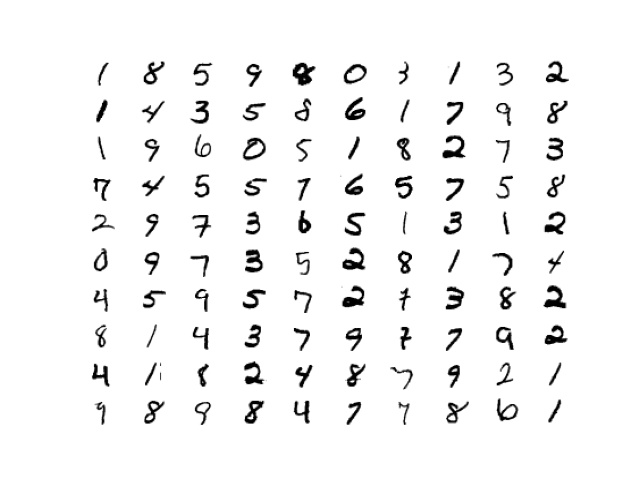 1 8 5 9 8 0 3 1 3 2
1 4 3 5 8 6 1 7 9 8
1 9 6 0 5 1 8 2 7 3
7 4 5 5 7 6 5 7 5 8
2 9 7 3 6 5 1 3 1 2
0 9 7 3 5 2 8 1 7 4
4 5 9 5 7 2 7 3 8 2
8 1 4 3 7 9 7 7 9 2
4 1 8 2 4 8 7 9 2 1
9 8 9 8 4 7 7 8 6 1